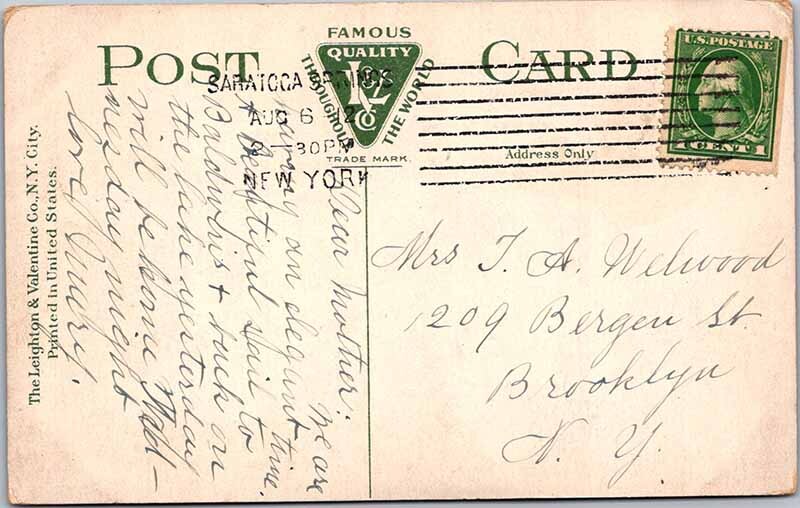 POST CARD
FAMOUS
QUALITY
L&V
Co
THROUGHOUT THE WORLD
TRADE MARK.
SARATOGA SPRINGS
AUG 6 12
9-30PM
NEW YORK
U.S. POSTAGE
1 CENT 1
Address Only
The Leighton & Valentine Co., N.Y. City.
Printed in United States.
Dear Mother: We are
having an elegant time.
A Beautiful sail to
Baldwin's & back on
the lake yesterday
will be home Wed-
nesday night
love
Mrs T. A. Welwood
1209 Bergen St.
Brooklyn
N. Y.